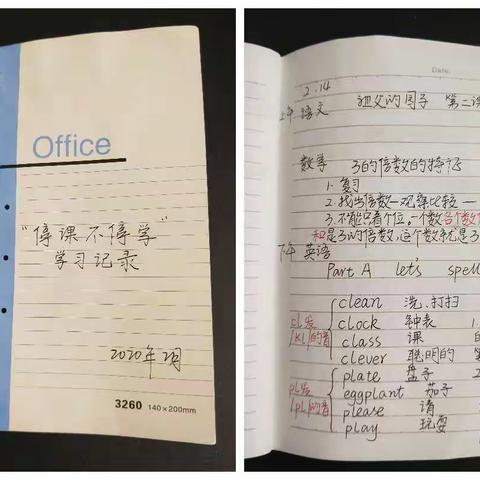 Office
“停课不停学”
学习记录
2020年2月
3260 140×200mm
Date:
2.14
上午 语文 祖父的园子 第二课
数学 3的倍数的特征
1. 复习
2. 找出倍数—观察比较—
3. 不能只看个位。一个数各个数位
和是3的倍数,这个数就是3
下午 英语
Part A let's spell
cl发/kl/的音
clean 洗、打扫
clock 钟表 1.
class 课
clever 聪明的
pl发/pl/的音
plate 盘子 2
eggplant 茄子
please 请
play 玩耍